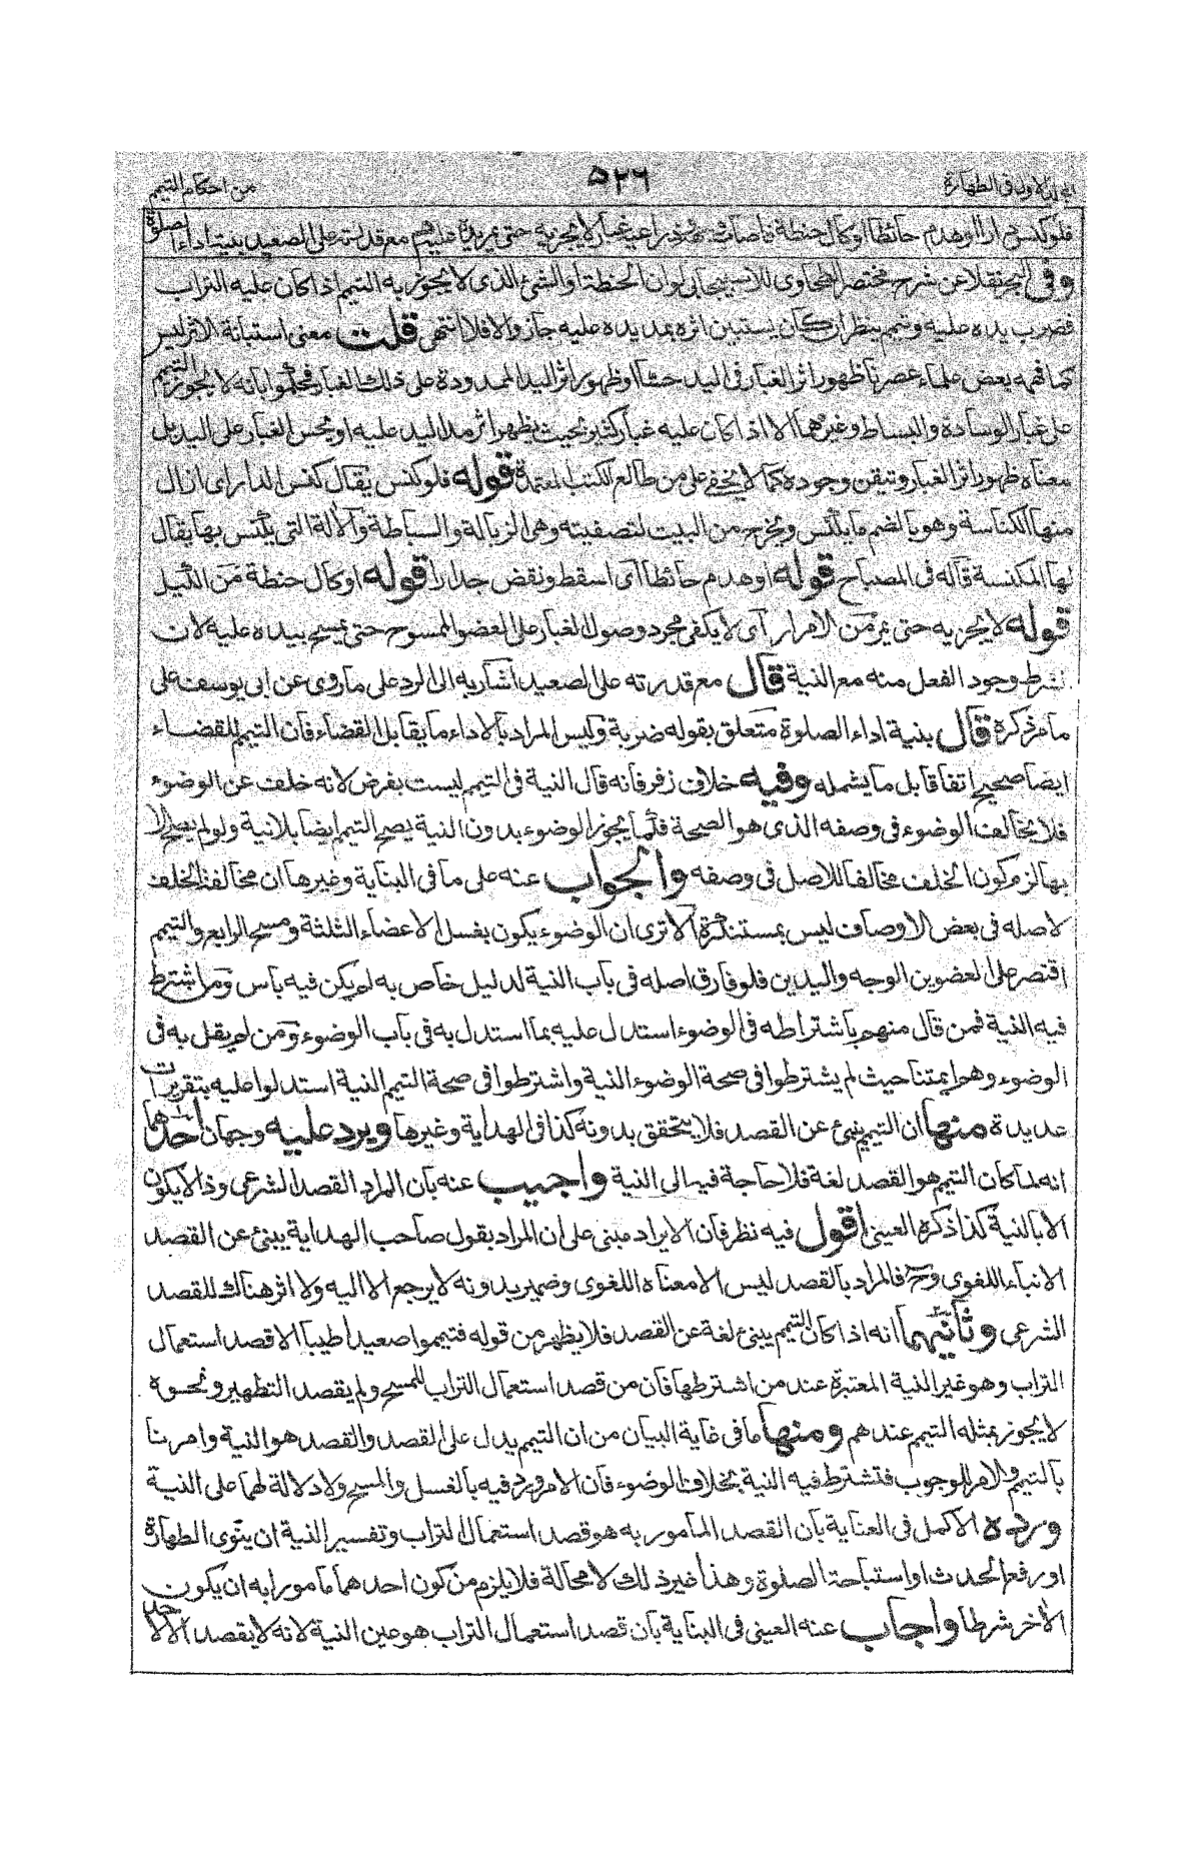 الجلد الاول فى الطهارة
٥٢٦
من احكام التيمم
فلو كنس دارا او هدم حائطا او كال حنطة فاصاب وجهه وذراعيه غبار لا يجزيه حتى يمر يده عليهم مع قدرته على الصعيد بنية اداء الصلوة
وفى البحر نقلا عن شرح مختصر الطحاوى للاسبيجابى لو ان الحنطة او الشئ الذى لا يجوز به التيمم اذا كان عليه التراب
فضرب يده عليه وتيمم ينظر ان كان يستبين اثره بمد يده عليه جاز والا فلا انتهى قلت معنى استبانة الاثر ليس
كما فهمه بعض علماء عصرنا ظهور اثر الغبار فى اليد حسا او ظهور اثر اليد الممدودة على ذلك الغبار فحكموا بانه لا يجوز التيمم
على غبار الوسادة والبساط وغيرهما الا اذا كان عليه غبار كثير بحيث يظهر اثر مد اليد عليه او يحس الغبار على اليد بل
معناه ظهور اثر الغبار وتيقن وجوده كما لا يخفى على من طالع الكتب المعتمدة قوله فلو كنس يقال كنس الدار اى ازال
منها الكناسة وهو بالضم ما يكنس ويخرج من البيت لتصفيته وهى الزبالة والسباطة والآلة التى يكنس بها يقال
لها المكنسة قاله فى المصباح قوله او هدم حائطا اى اسقط ونقض جدارا قوله او كال حنطة من الكيل
قوله لا يجزيه حتى يمر من الامرار اى لا يكفى مجرد وصول الغبار على العضو الممسوح حتى يمسح بيده عليه لان
شرط وجود الفعل منه مع النية قال مع قدرته على الصعيد اشار به الى الرد على ما روى عن ابى يوسف على
ما مر ذكره قال بنية اداء الصلوة متعلق بقوله ضربة وليس المراد بالاداء ما يقابل القضاء فان التيمم للقضاء
ايضا صحيح اتفاقا بل ما يشمله وفيه خلاف زفر فانه قال النية فى التيمم ليست بفرض لانه خلف عن الوضوء
فلا يخالف الوضوء فى وصفه الذى هو الصحة فلما يجوز الوضوء بدون النية يصح التيمم ايضا بلا نية ولو لم يصح الا
بها لزم كون الخلف مخالفا للاصل فى وصفه والجواب عنه على ما فى البناية وغيرها ان مخالفة الخلف
لاصله فى بعض الاوصاف ليس بمستنكرة الا ترى ان الوضوء يكون بغسل الاعضاء الثلثة ومسح الرابع والتيمم
اقتصر على العضوين الوجه واليدين فلو فارق اصله فى باب النية لدليل خاص به لم يكن فيه باس ومن اشترط
فيه النية فمن قال منهم باشتراطه فى الوضوء استدل عليه بما استدل به فى باب الوضوء ومن لم يقل به فى
الوضوء وهو ايمتنا حيث لم يشترطوا فى صحة الوضوء النية واشترطوا فى صحة التيمم النية استدلوا عليه بتقريرات
عديدة منها ان التيمم ينبئ عن القصد فلا يتحقق بدونه كذا فى الهداية وغيرها ويرد عليه وجهان احدهما
انه لما كان التيمم هو القصد لغة فلا حاجة فيه الى النية واجيب عنه بان المراد القصد الشرعى وذا لا يكون
الا بالنية كذا ذكره العينى اقول فيه نظر فان الايراد مبنى على ان المراد بقول صاحب الهداية ينبئ عن القصد
الانباء اللغوى وح فالمراد بالقصد ليس الا معناه اللغوى وضمير بدونه لا يرجع الا اليه ولا اثر هناك للقصد
الشرعى وثانيهما انه اذا كان التيمم ينبئ لغة عن القصد فلا يظهر من قوله فتيمموا صعيدا طيبا الا قصد استعمال
التراب وهو غير النية المعتبرة عند من اشترطها فان من قصد استعمال التراب للمسح ولم يقصد التطهير ونحوه
لا يجوز بمثله التيمم عندهم ومنها ما فى غاية البيان من ان التيمم يدل على القصد والقصد هو النية وامرنا
بالتيمم والامر للوجوب فتشترط فيه النية بخلاف الوضوء فان الامر ورد فيه بالغسل والمسح ولا دلالة لهما على النية
ورده الاكمل فى العناية بان القصد المامور به هو قصد استعمال التراب وتفسير النية ان ينوى الطهارة
او رفع الحدث او استباحة الصلوة وهذا غير ذلك لا محالة فلا يلزم من كون احدهما مامورا به ان يكون
الآخر شرطا واجاب عنه العينى فى البناية بان قصد استعمال التراب هو عين النية لانه لا يقصد الا لاحد